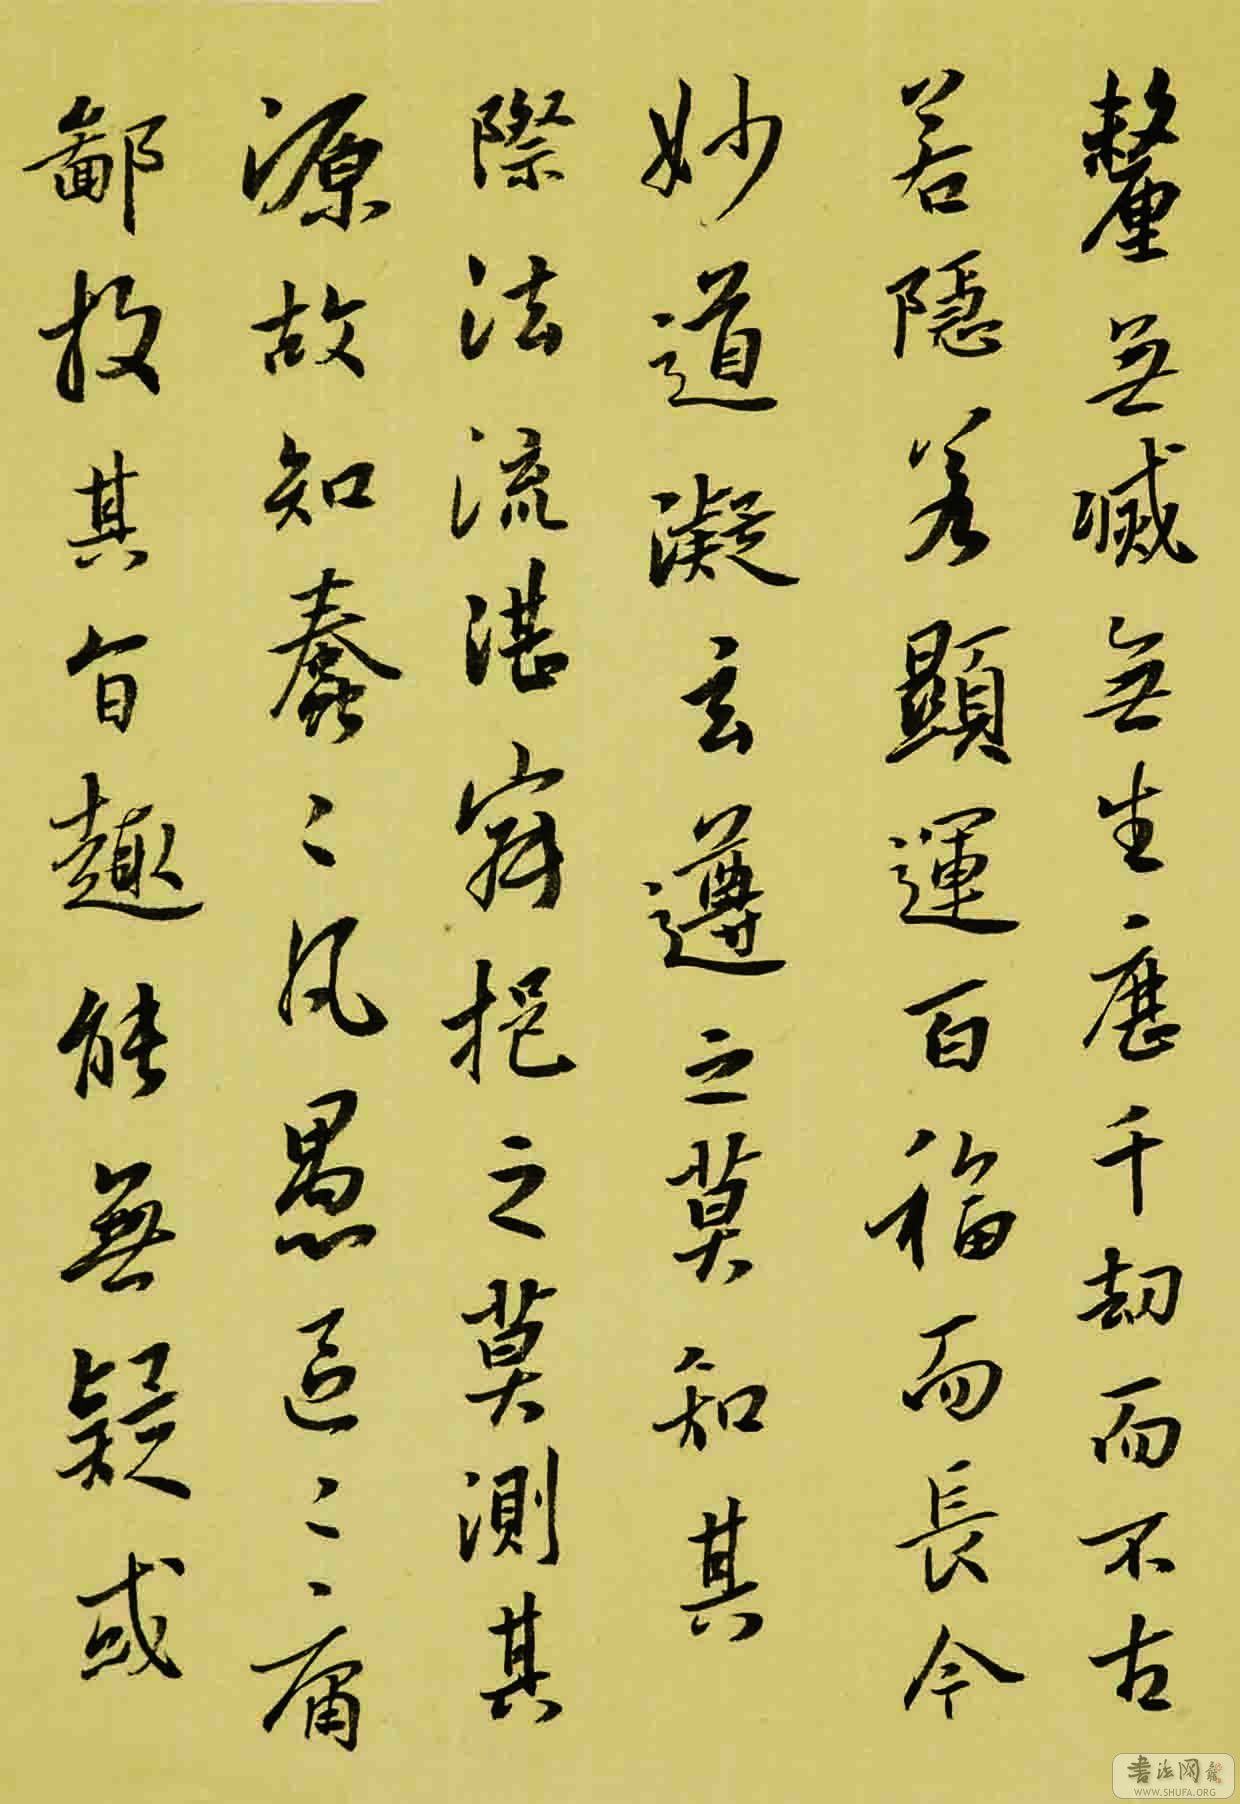 釐無滅無生歷千劫而不古
若隱若顯運百福而長今
妙道凝玄遵之莫知其
際法流湛寂挹之莫測其
源故知蠢々凡愚區々庸
鄙投其旨趣能無疑或
書法网
WWW.SHUFA.ORG